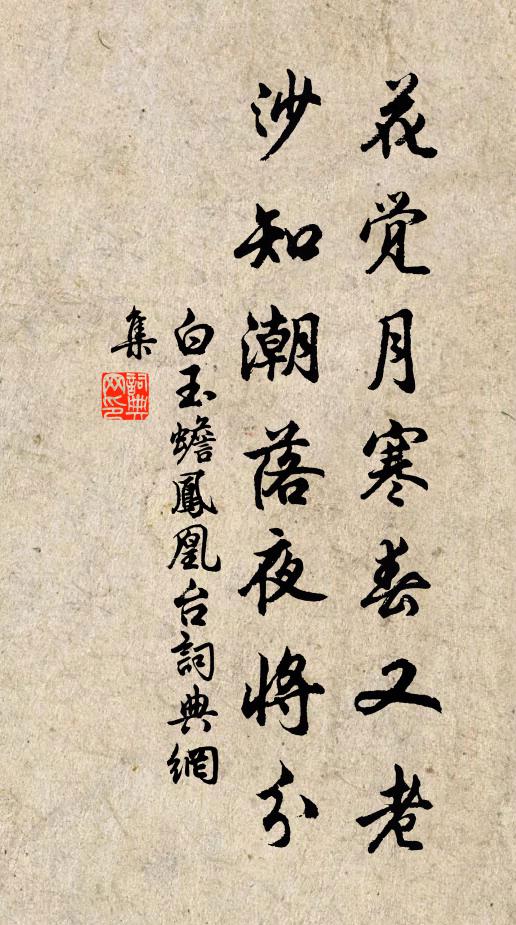 花觉月寒春又老
沙知潮落夜将分
白玉蟾鳳凰台詞典網
集
詞典网印